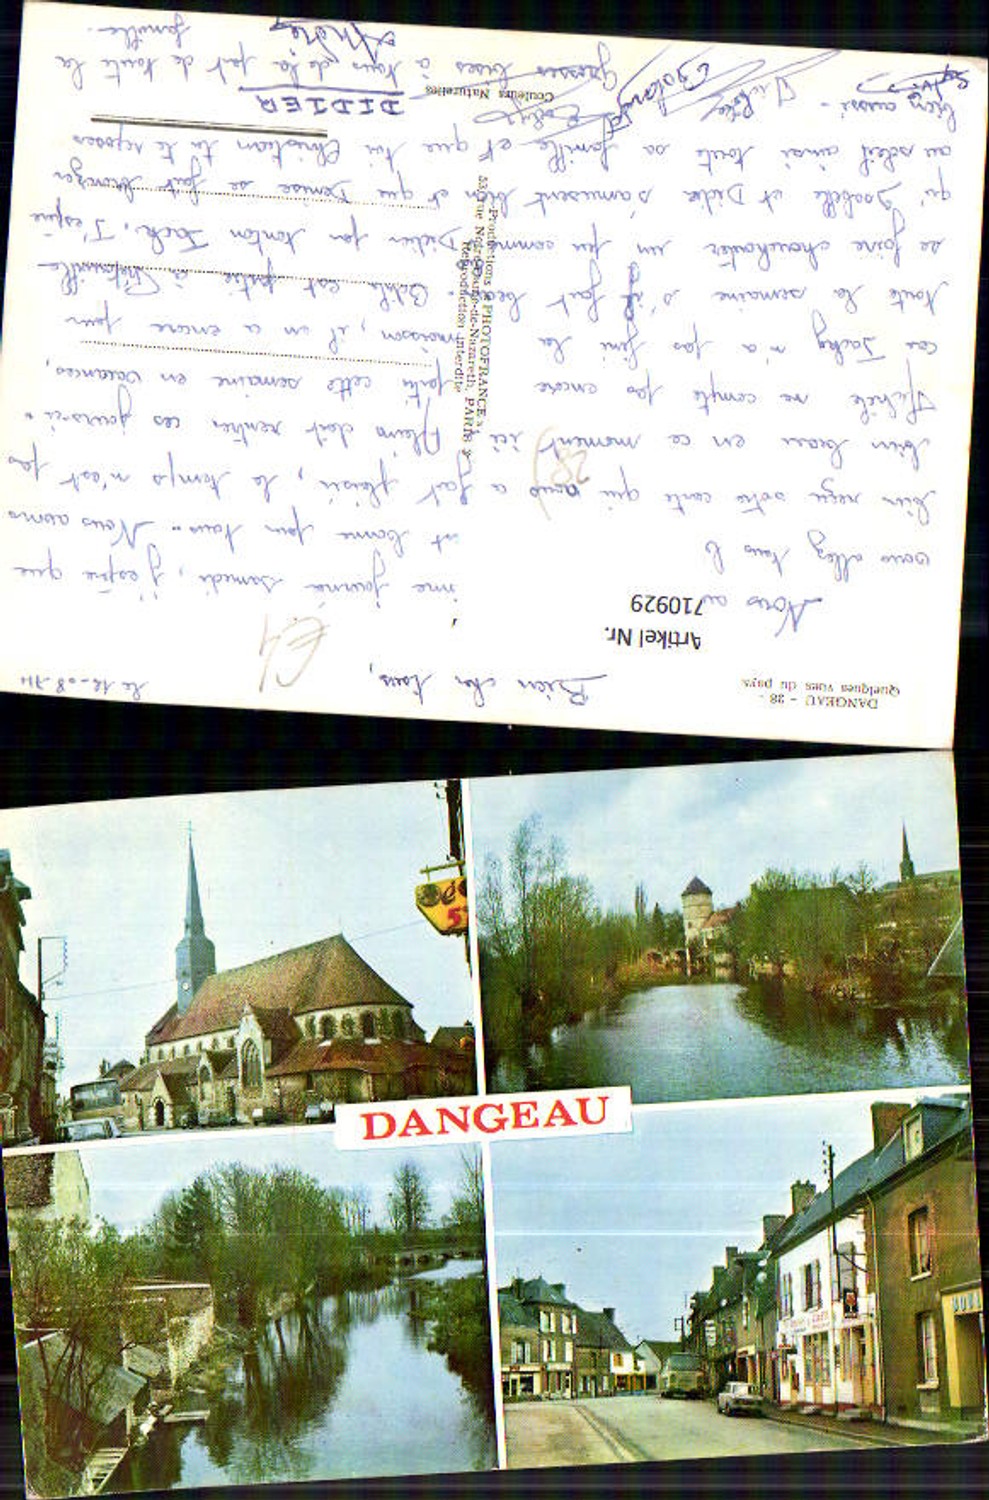 DANGEAU - 28 -
Quelques vues du pays.
Artikel Nr.
710929
Productions « PHOTOFRANCE »
53, rue Notre-Dame-de-Nazareth, PARIS 3e
Reproduction interdite
Couleurs Naturelles
le 12-08-74
Bien cher tous,
Nous
vous allez tous b
bien reçu votre carte qui nous a fait plaisir, le temps n'est pas
bien beau en ce moment ici Alain doit rentrer ces jours-ci.
Michèle ne compte pas encore partir cette semaine en vacances,
car Jacky n'a pas fini la moisson, il en a encore pour
toute la semaine s'il fait beau. est partie à
se faire chouchouter un peu comme Didier par tonton Jack. J'espère
qu'Isabelle et Didier s'amusent bien et que Denise se fait bronzer
au soleil ainsi toute sa famille et que toi Christian tu te reposes
bien aussi.
une journée samedi, j'espère que
est bonne pour tous. Nous avons
Grosses bises à tous de la part de toute la
famille.
DIDIER
DANGEAU